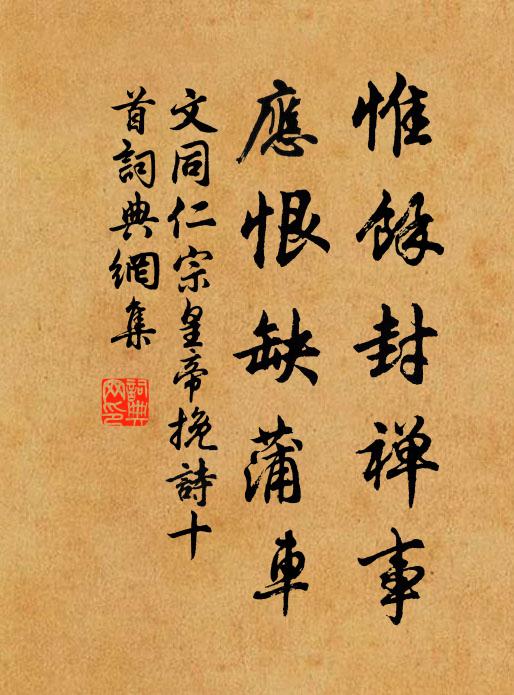 惟餘封禅事
應恨缺蒲車
文同仁宗皇帝挽詩十
首詞典網集
詞典
网印